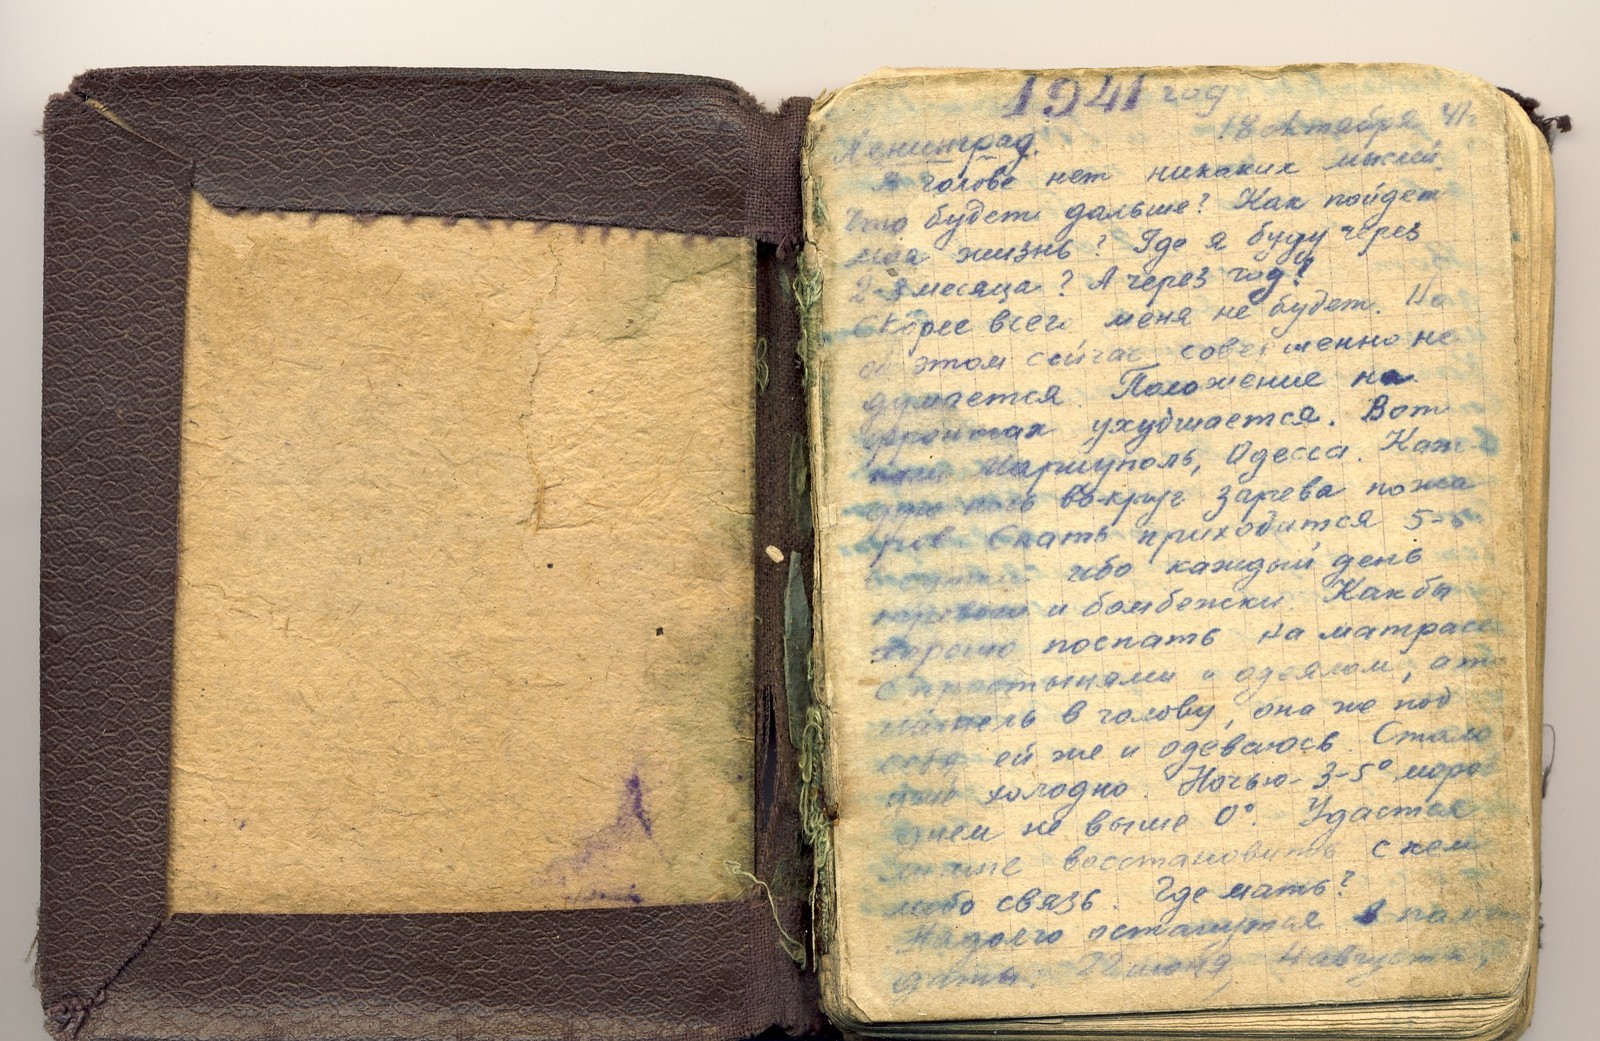 1941 год
Ленинград. 18 октября 41г
В голове нет никаких мыслей.
Что будет дальше? Как пойдет
моя жизнь? Где я буду через
2-3 месяца? А через год?
Скорее всего меня не будет. Но
об этом сейчас совершенно не
думается. Положение на
фронтах ухудшается. Вот
Мариуполь, Одесса. Каж-
дую ночь вокруг зарева пожа
ров. Спать приходится 5-6
ибо каждый день
тревоги и бомбежки. Как бы
хорошо поспать на матрасе
с простынями и одеялом, а то
шинель в голову, она же под
себя ей же и одеваюсь. Стало
холодно. Ночью - 3-5° моро
днем не выше 0°. Удастся
восстановить с кем
либо связь. Где мать?
Надолго останутся в памя
даты. 22 июня, 4 августа,